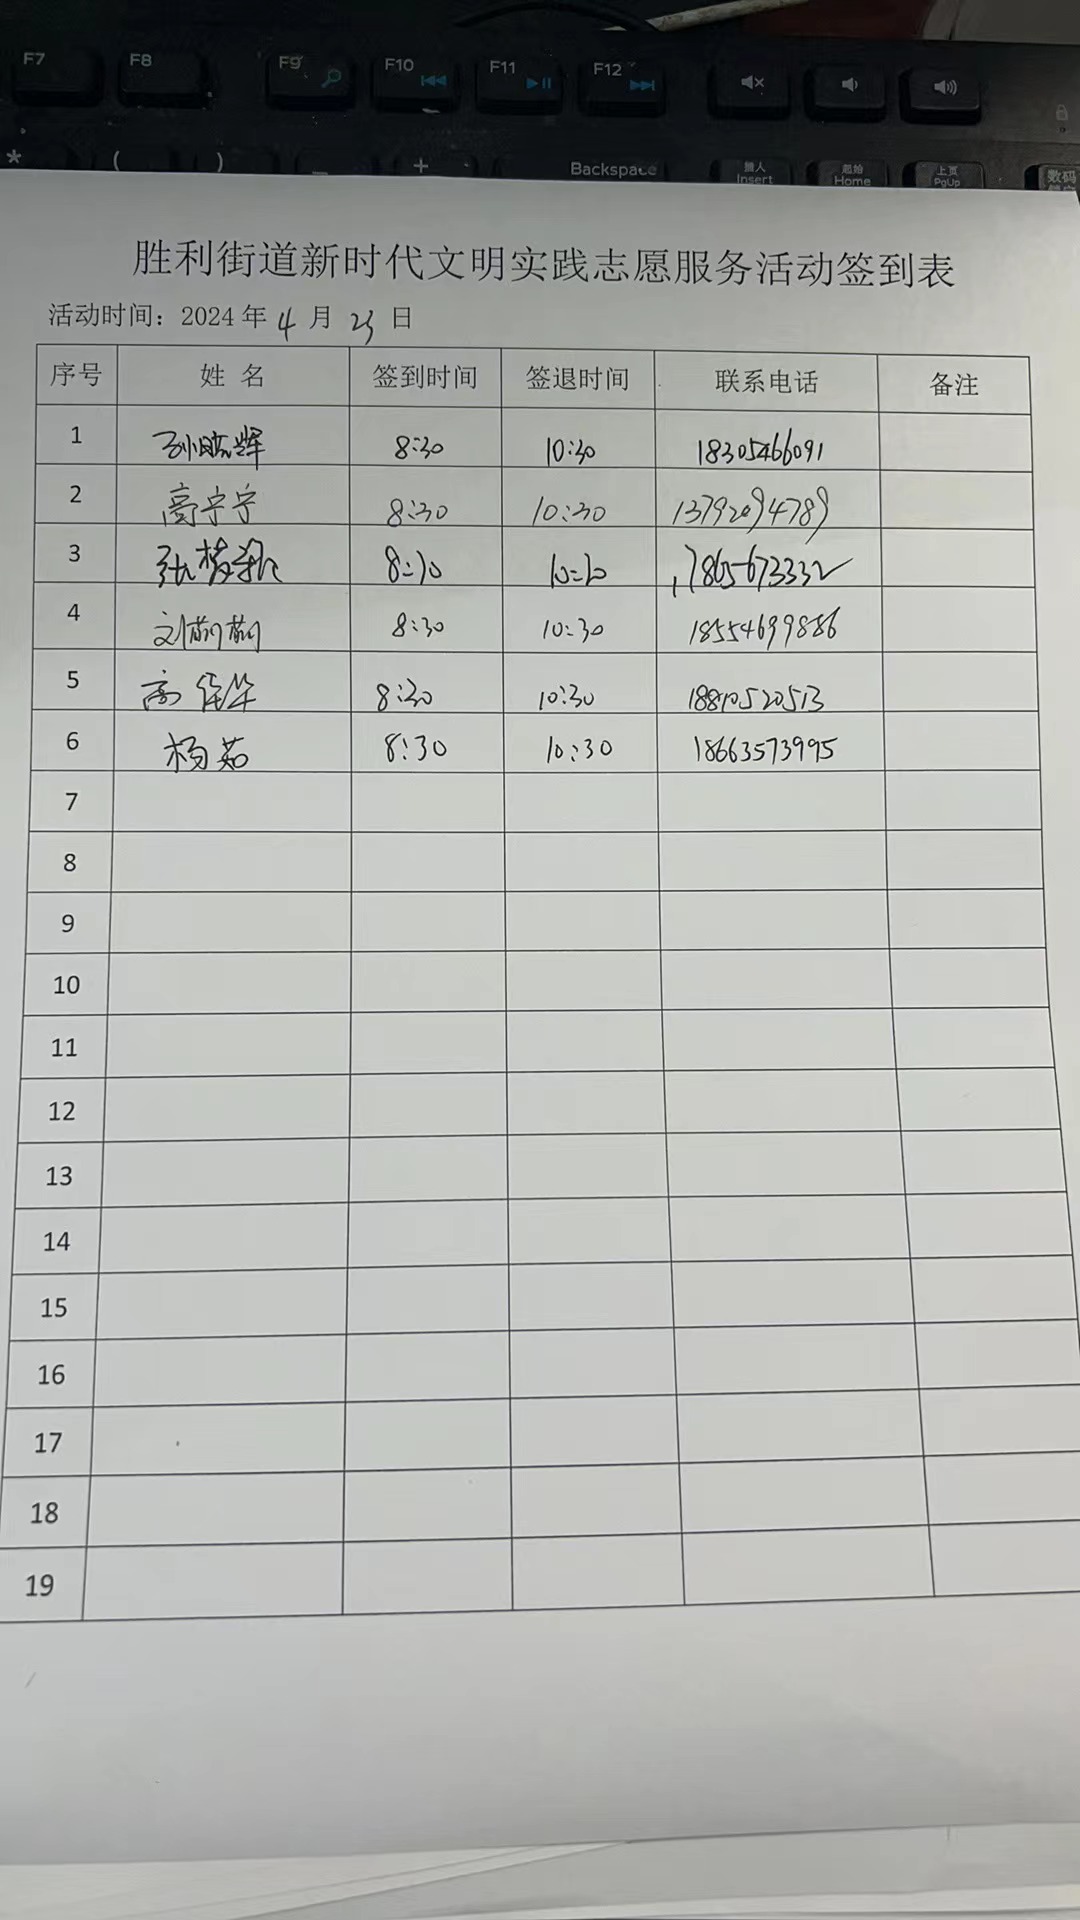 F7 F8 F9 F10 F11 F12
* ( ) _ + Backspace 插入 Insert 起始 Home 上页 PgUp 数码
胜利街道新时代文明实践志愿服务活动签到表
活动时间：2024 年 4 月 23 日
序号 姓 名 签到时间 签退时间 联系电话 备注
1 孙晓辉 8:30 10:30 18305466091
2 高宁宁 8:30 10:30 13792094789
3 张 8:30 10:30 17865673332
4 刘莉莉 8:30 10:30 18554699886
5 高 8:30 10:30 18810520513
6 杨茹 8:30 10:30 18663573995
7
8
9
10
11
12
13
14
15
16
17
18
19